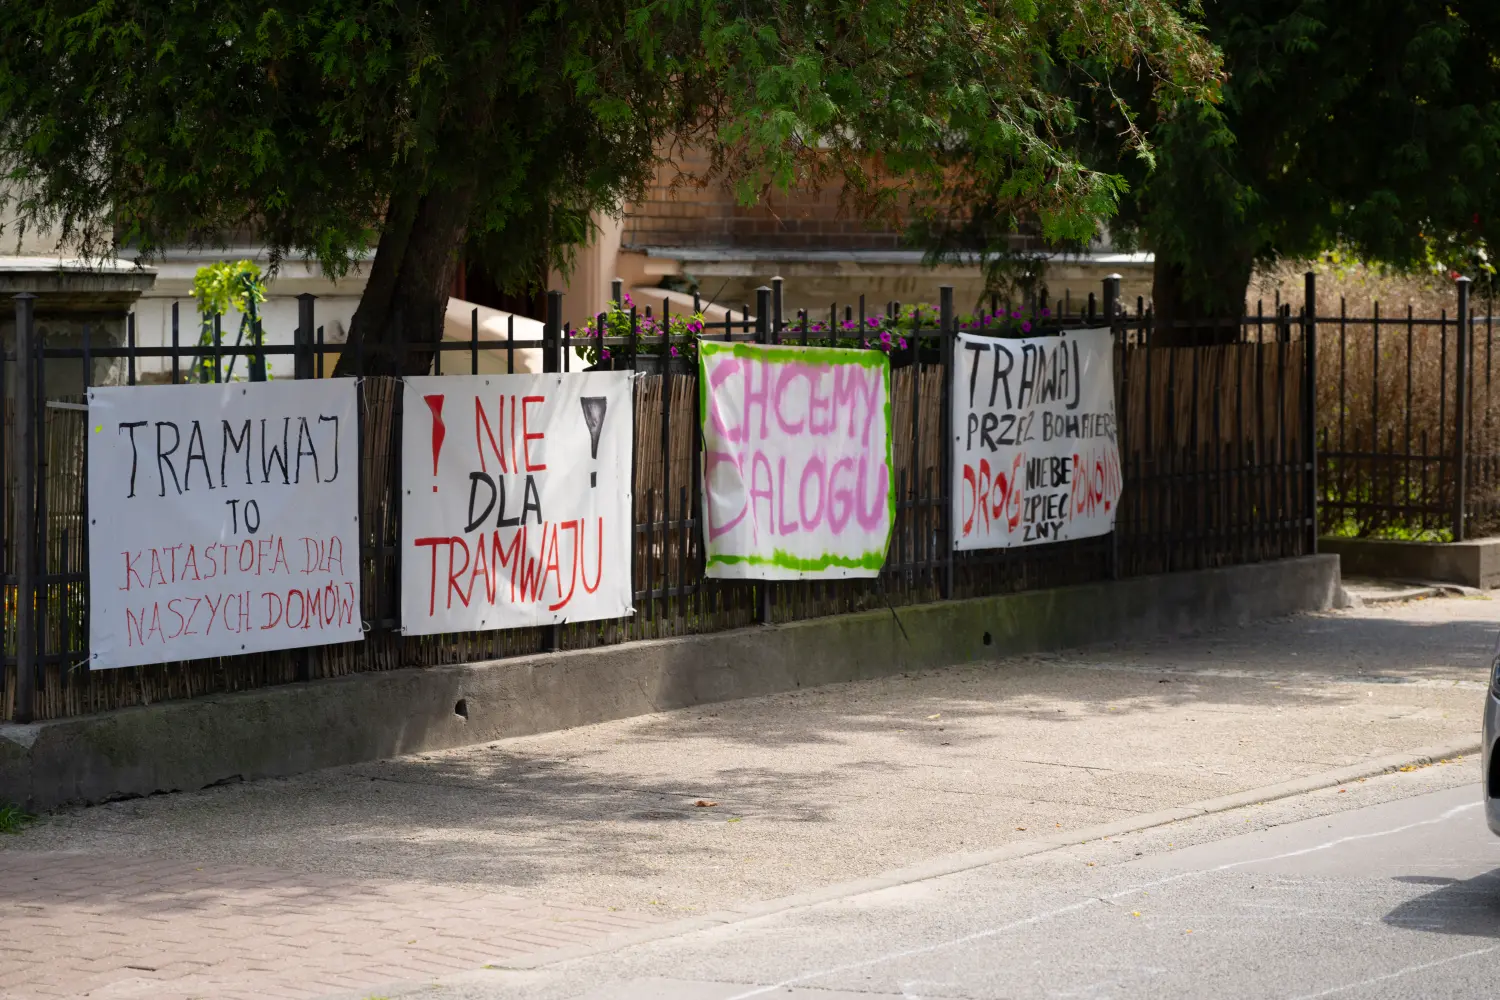 TRAMWAJ
TO
KATASTOFA DLA
NASZYCH DOMÓW
! NIE !
DLA
TRAMWAJU
CHCEMY
DIALOGU
TRAMWAJ
PRZEZ BOHATERÓ
DROGI NIEBEZPIECZNY. POWOLNY